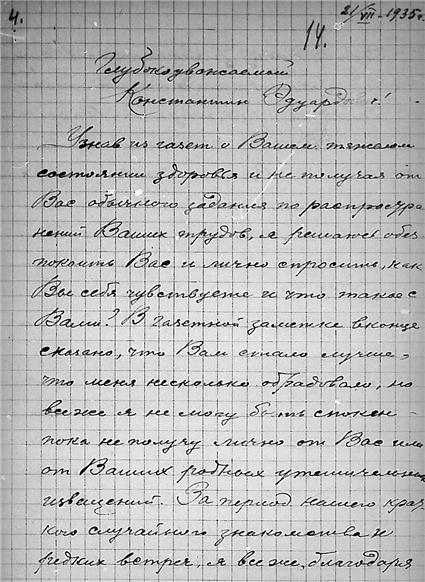 4.
21/VII-1935 г.
14.
Глубокоуважаемый
Константин Эдуардович!
Узнав из газет о Вашем тяжелом
состоянии здоровья и не получая от
Вас обычного задания по распростра
нений Ваших трудов, я решаюсь обес
покоить Вас и лично спросить, как
Вы себя чувствуете и что такое с
Вами? В газетной заметке в конце
сказано, что Вам стало лучше,
что меня несколько обрадовало, но
все же я не могу быть спокен
пока не получу лично от Вас или
от Ваших родных утешительных
извещений. За период нашего крат
кого случайного знакомства и
редких встреч, я все же, благодаря